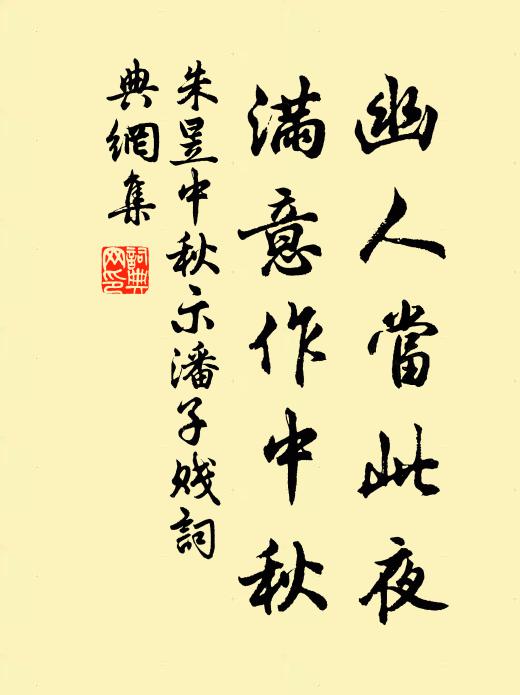 幽人當此夜
滿意作中秋
朱昱中秋示潘子賤詞
典網集
詞典
网印